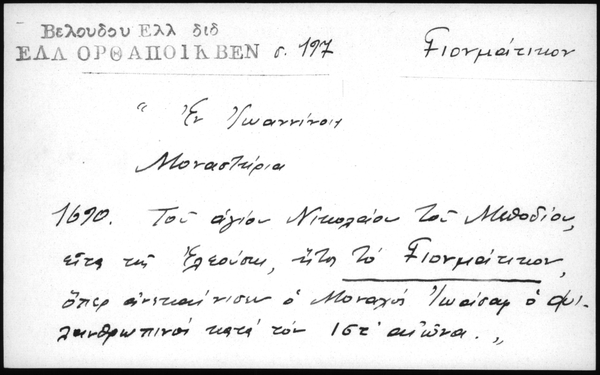 Βελουδου Ελλ διδ
ΕΛΛ ΟΡΘΑΠΟΙΚΒΕΝ σ. 197 Γιουμάτικον
"Ἐν Ἰωαννίνοις
Μοναστήρια
1690. Τοῦ ἁγίου Νικολάου τοῦ Μεθοδίου,
εἶτα τῆς Ἐλεούσης, ἤτοι τὸ Γιουμάτικον,
ὅπερ ἀνεκαίνισεν ὁ Μοναχὸς Ἰωάσαφ ὁ Φι-
λανθρωπινὸς κατὰ τὸν ιστ' αἰῶνα."